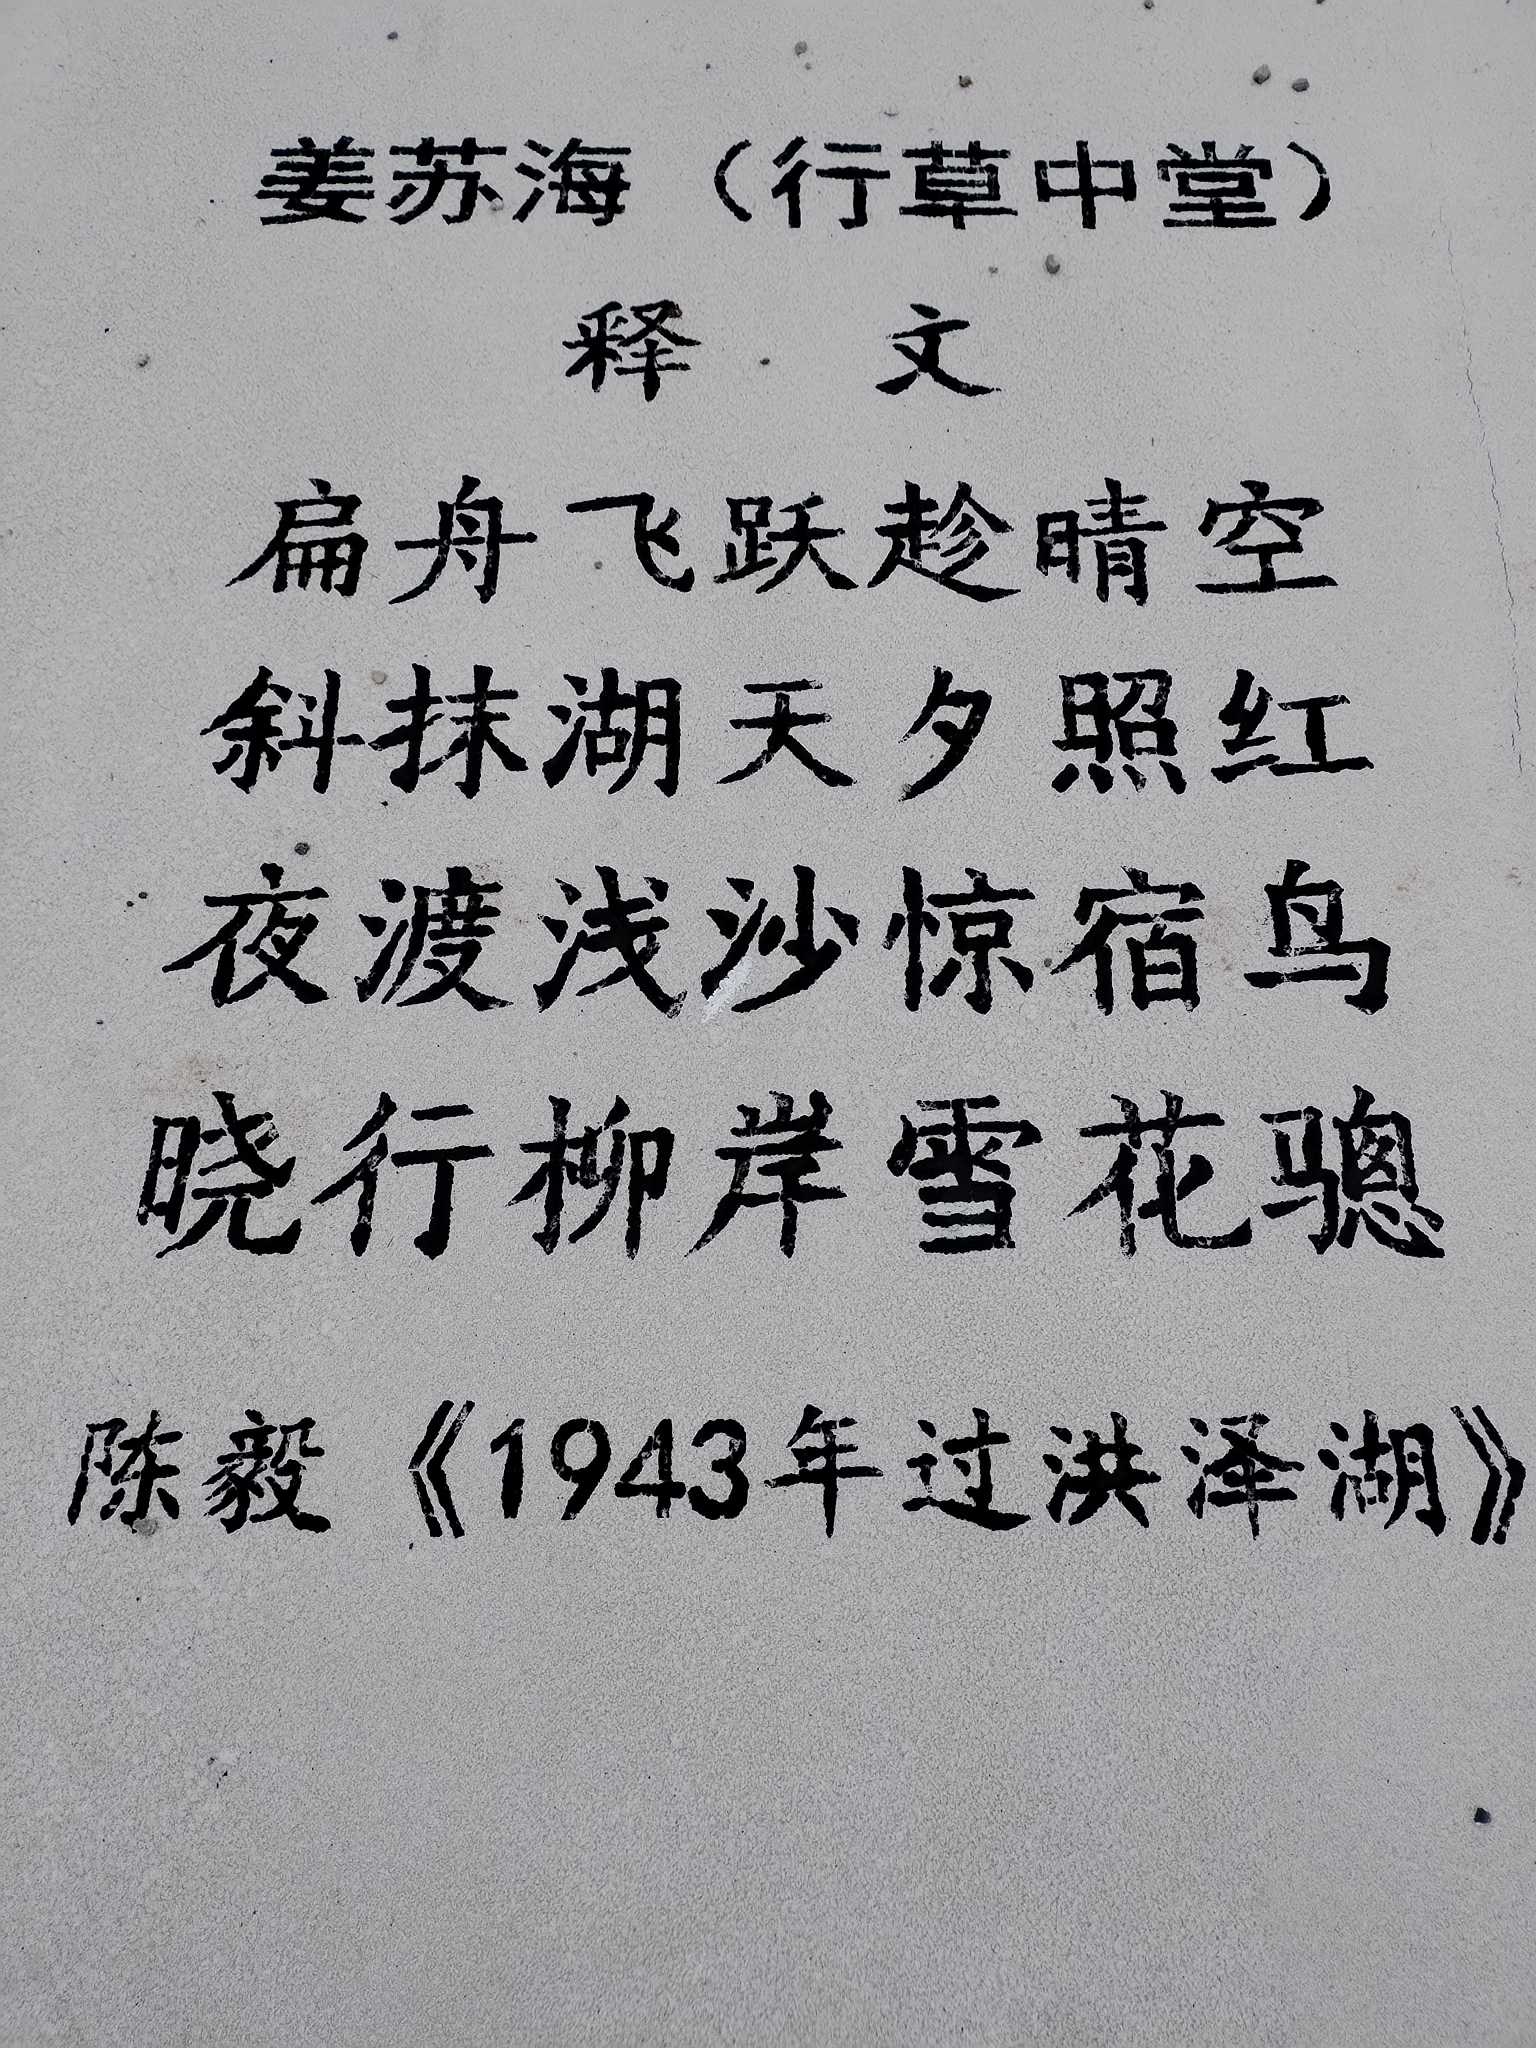 姜苏海（行草中堂）
释 文
扁舟飞跃趁晴空
斜抹湖天夕照红
夜渡浅沙惊宿鸟
晓行柳岸雪花骢
陈毅《1943年过洪泽湖》